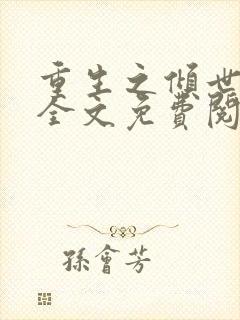 重生之傾世
全文免費閱
孫會芳